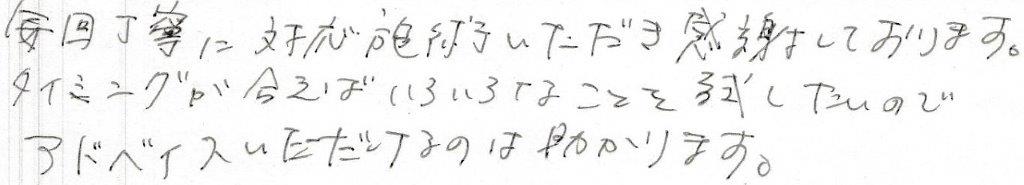 毎回丁寧に対応施術いただき感謝しております。
タイミングが合えばいろいろなことを試したいので
アドバイスいただけるのは助かります。